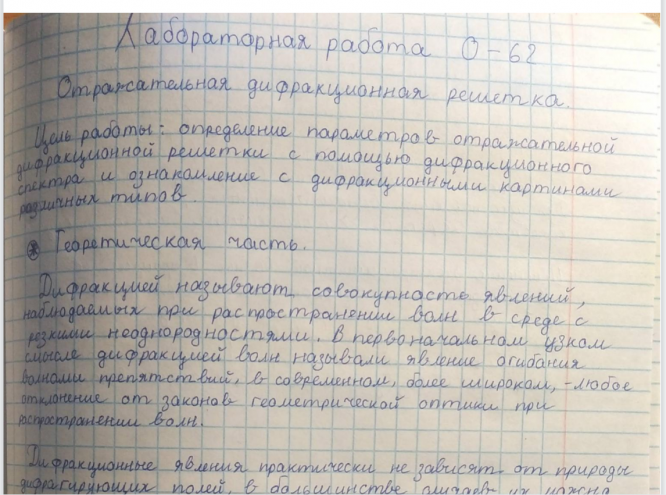 Лабораторная работа О-62
Отражательная дифракционная решетка.
Цель работы: определение параметров отражательной
дифракционной решетки с помощью дифракционного
спектра и ознакомление с дифракционными картинами
различных типов.
Теоретическая часть.
Дифракцией называют совокупность явлений,
наблюдаемых при распространении волн в среде с
резкими неоднородностями. В первоначальном узком
смысле дифракцией волн называли явление огибания
волнами препятствий, в современном, более широком, - любое
отклонение от законов геометрической оптики при
распространении волн.
Дифракционные явления практически не зависят от природы
дифрагирующих полей, в большинстве случаев их можно